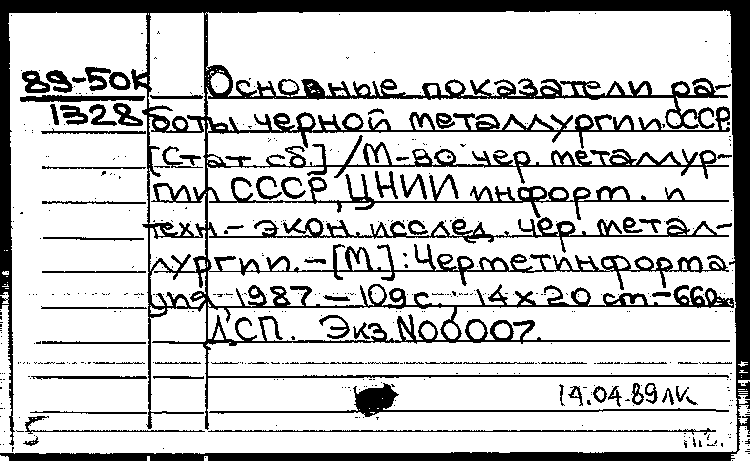 89-50К
1328
Основные показатели ра-
боты черной металлургии СССР.
[Стат. сб.] / М-во чер. металлур-
гии СССР, ЦНИИ информ. и
техн.- экон. исслед. чер. метал-
лургии. - [М.] : Черметинформа-
ция, 1987. - 109 с. ; 14 х 20 см. - 660 экз
ДСП. Экз. N 00007.
14.04.89 ЛК
5